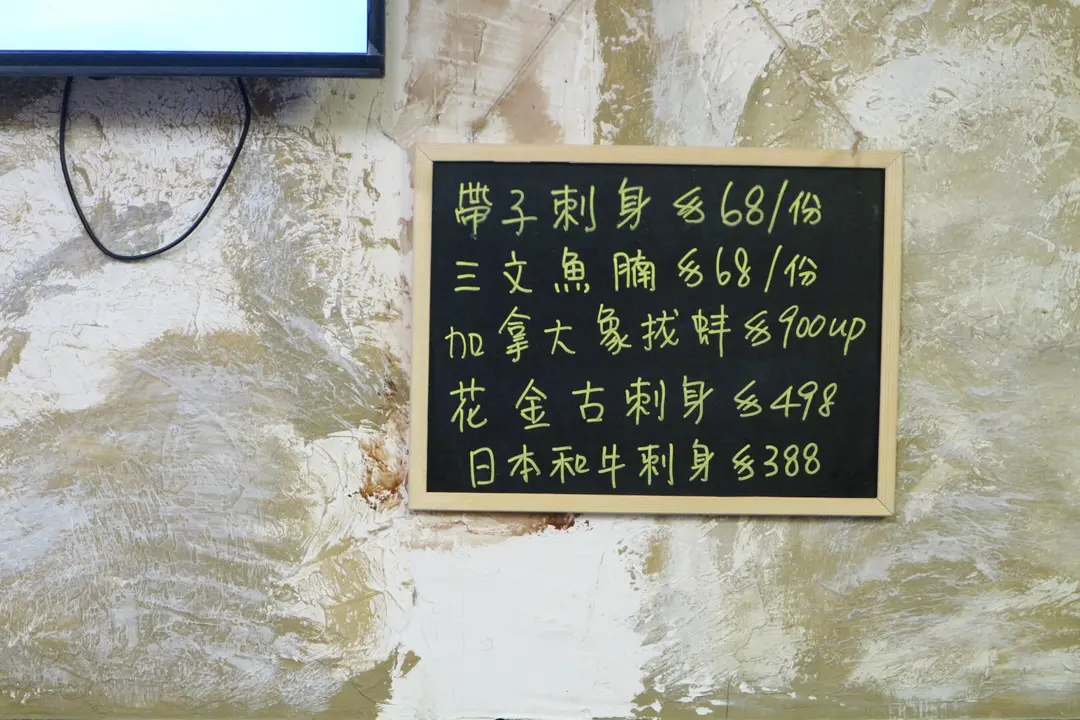 帶子刺身 $68/份
三文魚腩 $68/份
加拿大象找蚌 $900up
花金古刺身 $498
日本和牛刺身 $388